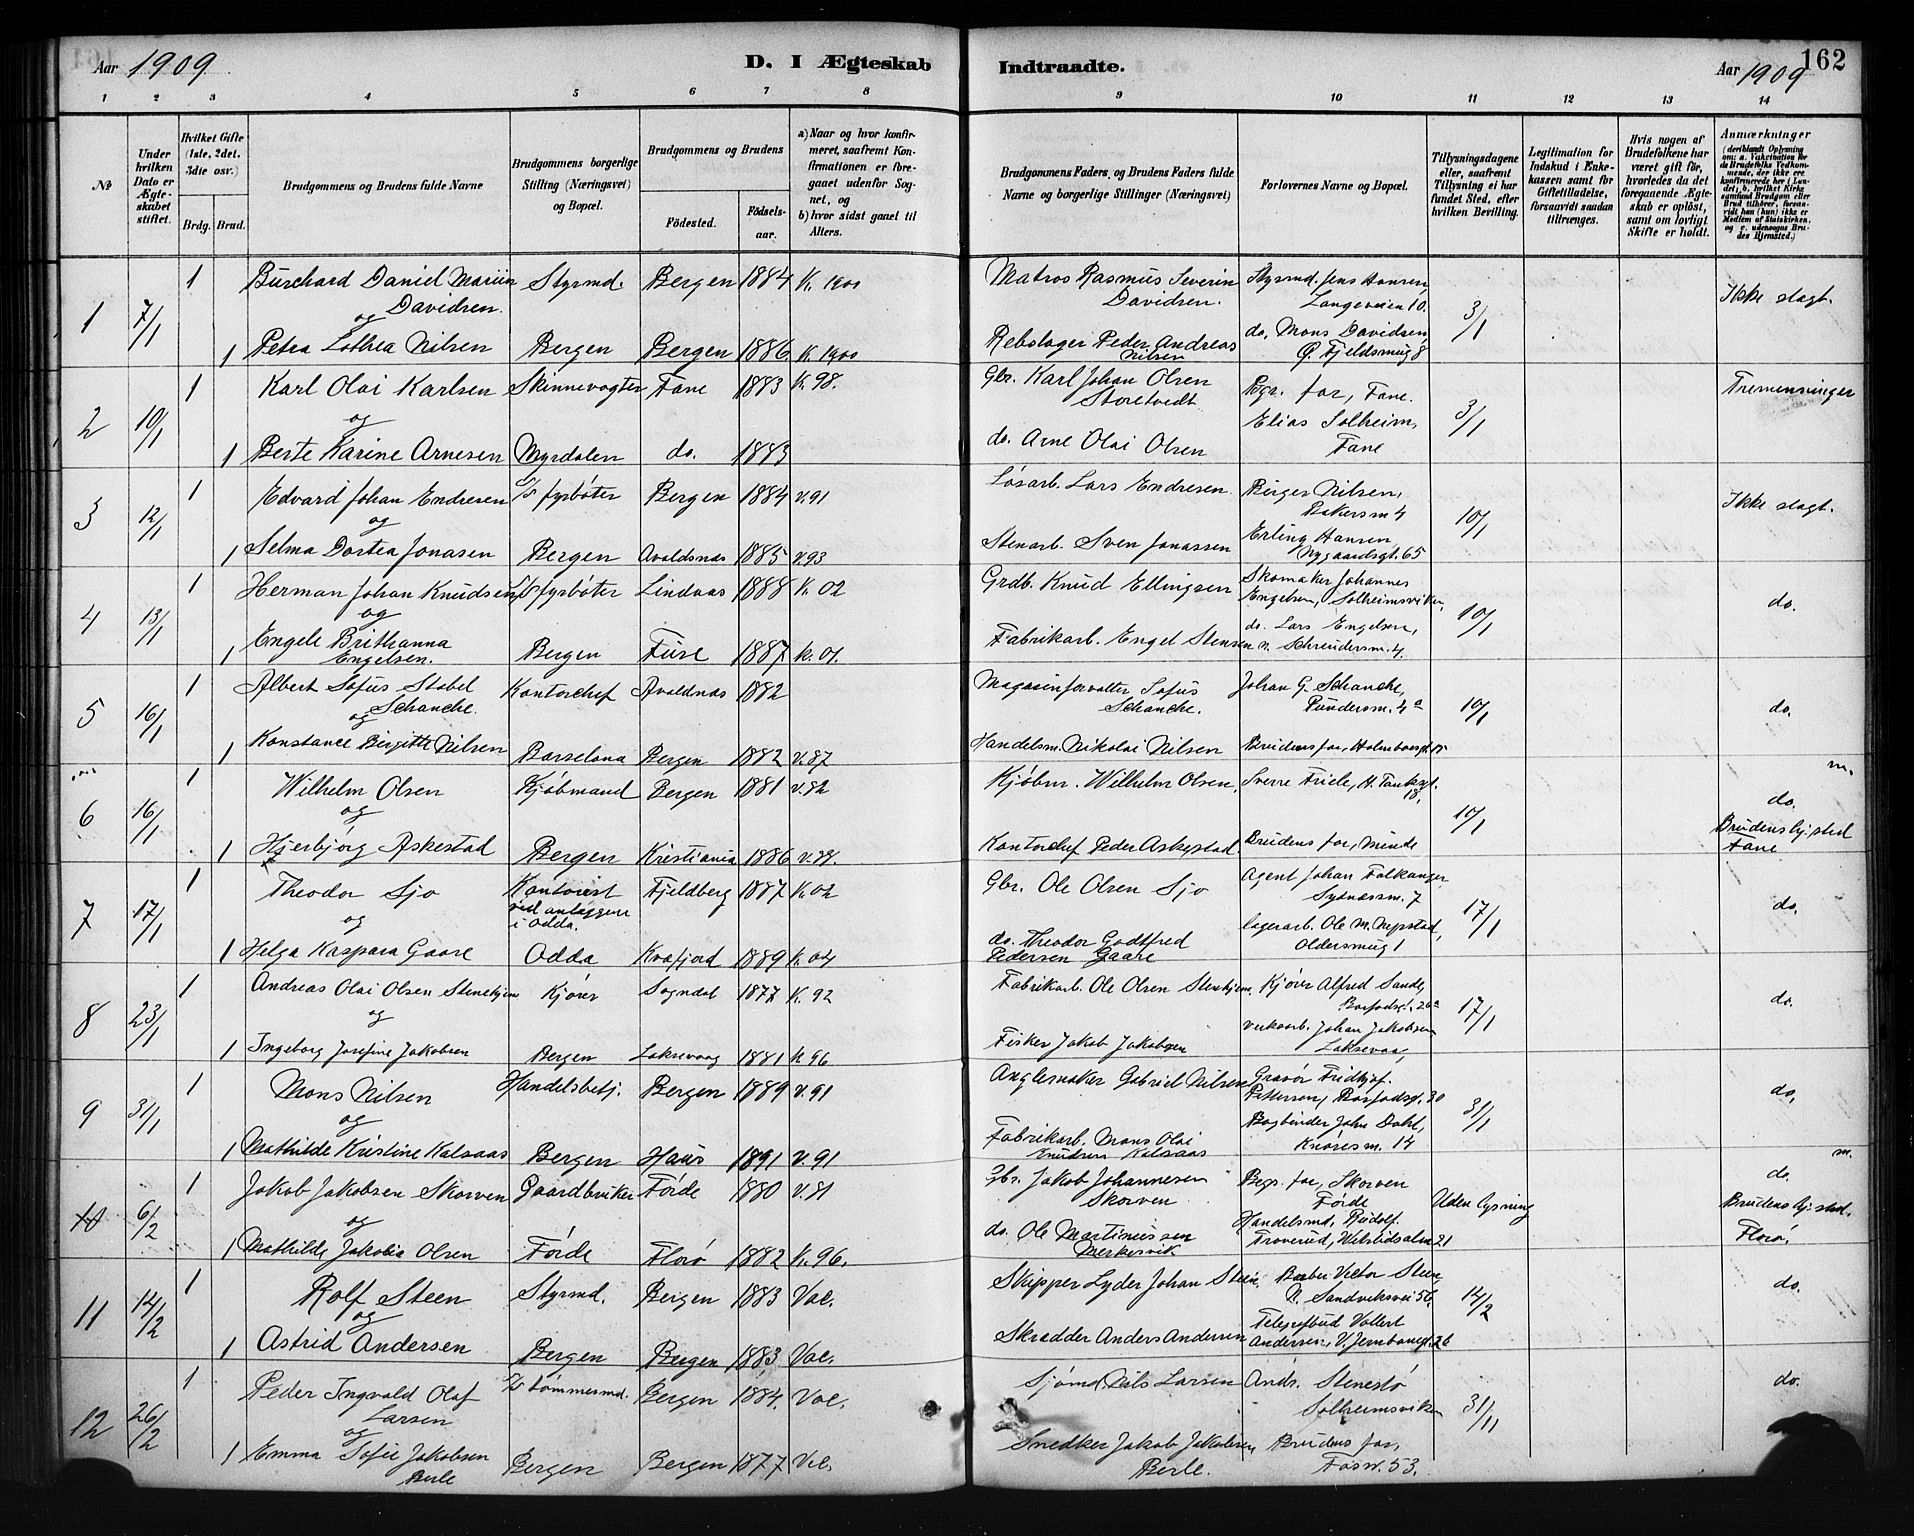 Aar 1909.
D. I Ægteskab
Indtraadte.
Aar 1909
162
1 2 3 4 5 6 7 8
9 10 11 12 13 14
№
Under hvilken Dato er Ægteskabet stiftet.
Hvilket Gifte (1ste, 2det, 3die osv.)
Brdg. Brud.
Brudgommens og Brudens fulde Navne
Brudgommens borgerlige Stilling (Næringsvei) og Bopæl.
Brudgommens og Brudens
Födested.
Födselsaar.
a) Naar og hvor konfirmeret, saafremt Konfirmationen er foregaaet udenfor Sognet, og
b) hvor sidst gaaet til Alters.
Brudgommens Faders, og Brudens Faders fulde Navne og borgerlige Stillinger (Næringsvei)
Forlovernes Navne og Bopæl.
Tillysningsdagene eller, saafremt Tillysning ei har fundet Sted, efter hvilken Bevilling.
Legitimation for Indskud i Enkekassen samt for Giftetilladelse, forsaavidt saadan tiltrænges.
Hvis nogen af Brudefolkene har været gift för, hvorledes da det foregaaende Ægteskab er oplöst, samt om lovligt Skifte er holdt.
Anmærkninger
1 7/1 1 Burchard Daniel Davidsen. Styrmd. Bergen 1884 K. 1900
Matros Rasmus Severin Davidsen. Styrmd. Jens Hansen, Langeveien 10. 3/1 Ikke slægt.
og
1 Petra Lothea Nilsen Bergen Bergen 1886 K. 1900
Rebslager Peder Andreas Nilsen do. Mons Davidsen, Ø. Fjeldsmug 8
2 10/1 1 Karl Olai Karlsen Skinnevogter Fane 1883 K. 98.
Gbr. Karl Johan Olsen Storetvedt for, Fane. 3/1 Tremenninger
og
1 Berte Karine Arnesen Myrdalen do. 1883
do. Arne Olai Olsen Elias Solheim, Fane
3 12/1 1 Edvard Johan Endresen fyrbøter Bergen 1884 V. 91
Løsarb. Lars Endresen. Birger Nilsen, Bakersm 4 10/1 Ikke slagt.
og
1 Selma Dortea Jonasen Bergen Avaldsnæs 1885 V. 93
Stenarb. Sven Jonassen Erling Hansen Nygaardsgt. 65
4 13/1 1 Herman Johan Knudsen fyrbøter Lindaas 1888 K. 02
Grdb. Knud Ellingsen Skomaker Johannes Engelsen, Solheimsviken, 10/1 do.
og
1 Engele Brithanna Engelsen. Bergen Fuse 1887 K. 01.
Fabrikarb. Engel Stensen do. Lars Engelsen,
5 16/1 1 Albert Sofus Stabel Schanche. Kontorchef Avaldnæs 1882
Magasinforvalter Sofus Schanche. Johan G. Schanche, Pundersm. 4a 10/1 do.
og
1 Konstance Birgitte Nilsen Barselona Bergen 1882 V. 87
Handelsm. Nikolai Nilsen Brudens far,
6 16/1 1 Wilhelm Olsen Kjøbmand Bergen 1881 V. 82
Kjøbm. Wilhelm Olsen, Sverre Friele, 18, 10/1 do.
og
1 Hjerbjörg Askestad Bergen Kristiania 1886
Kontorchef Peder Askestad. Brudens far, Minde Brudens hj. sted Fane
7 17/1 1 Theodor Sjo Kontorist ved anlæggene i Odda. Fjeldberg 1887 K. 02
Gbr. Ole Olsen Sjo Agent Johan Falkanger Sydnæssm. 7 17/1 do.
og
1 Helga Kaspara Gaare Odda Kvæfjord 1889 K. 04
do. Theodor Godtfred Pedersen Gaare lagerarb. Ole M. Oldersmug 1
8 23/1 1 Andreas Olai Olsen Kjører Sogndal 1877 K. 92
Fabrikarb. Ole Olsen Kjører Alfred Sande, 17/1 do.
og
1 Ingeborg Josefine Jakobsen Bergen Laksevaag 1881 K 96
Fisker Jakob Jakobsen Johan Jakobsen
9 31/1 1 Mons Nilsen Handelsbetj. Bergen 1889 V. 91
Gabriel Nilsen Gravør Fridthjof Pettersen, 30 31/1 do,
og
1 Mathilde Kristine Kalsaas Bergen Haus 1891 V. 91
Fabrikarb. Mons Olai Knudsen Kalsaas Bogbinder John Dahl, Knøsesm. 14
10 6/2 1 Jakob Jakobsen Skorven Gaardbruker Førde 1880 V. 81
Gbr. Jakob Johannesen Skorven far, Skorven Førde Uden lysning do.
og
1 Mathilde Jakobia Olsen Førde Florø 1882 K. 96.
do. Ole Martinussen Handelsmd, Rudolf 21 Brudens hj. sted. Florø.
11 14/2 1 Rolf Steen Styrmd. Bergen 1883 Vac.
Skipper Lyder Johan Steen. Victor Steen N. Sandviksvei 56. 14/2 do.
og
1 Astrid Andersen Bergen Bergen 1883, Vac.
Skrædder Anders Andersen Telegrafbud Andersen,
12 26/2 1 Peder Ingvald Olaf Larsen tømmermd. Bergen 1884. Vac.
Sjømd. Nils Larsen Andr. Stenestø Solheimsviken 31/11 do.
og
1 Emma Sofie Jakobsen Berle Bergen Bergen 1877 Vac.
Snedker Jakob Jakobsen Berle. Brudens far, 53.